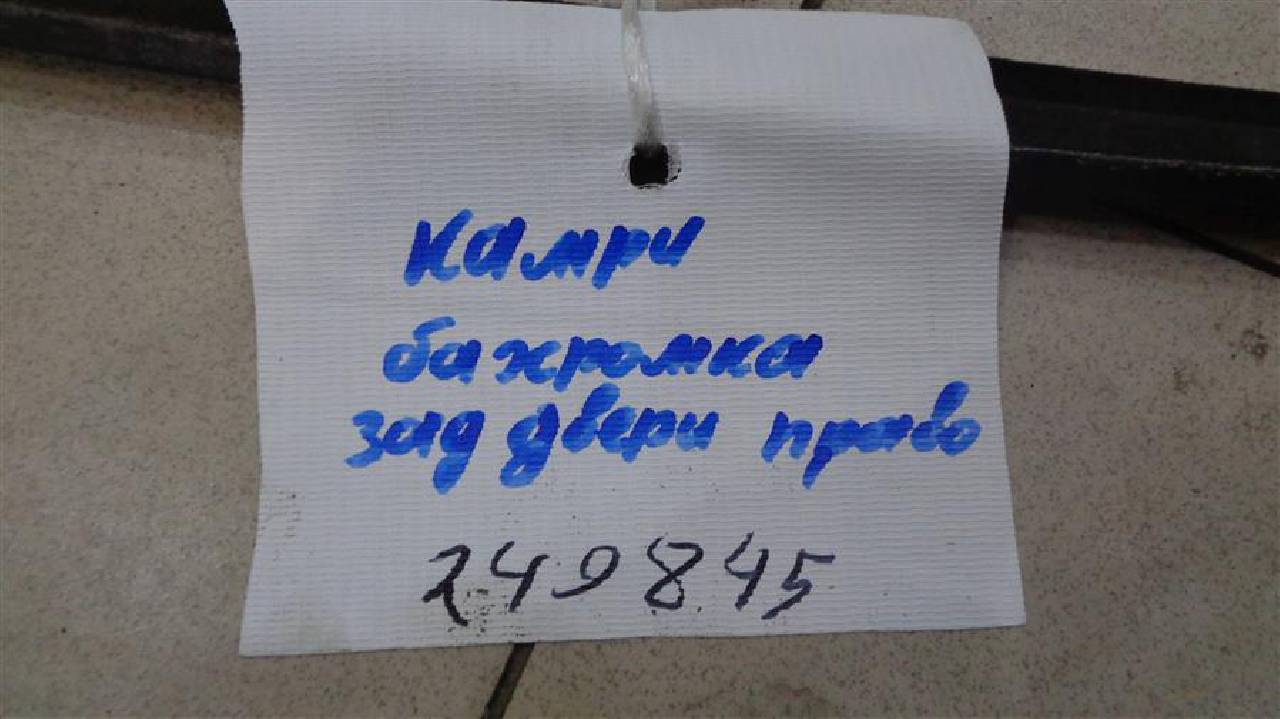 Камри
бахромка
зад двери право
249845